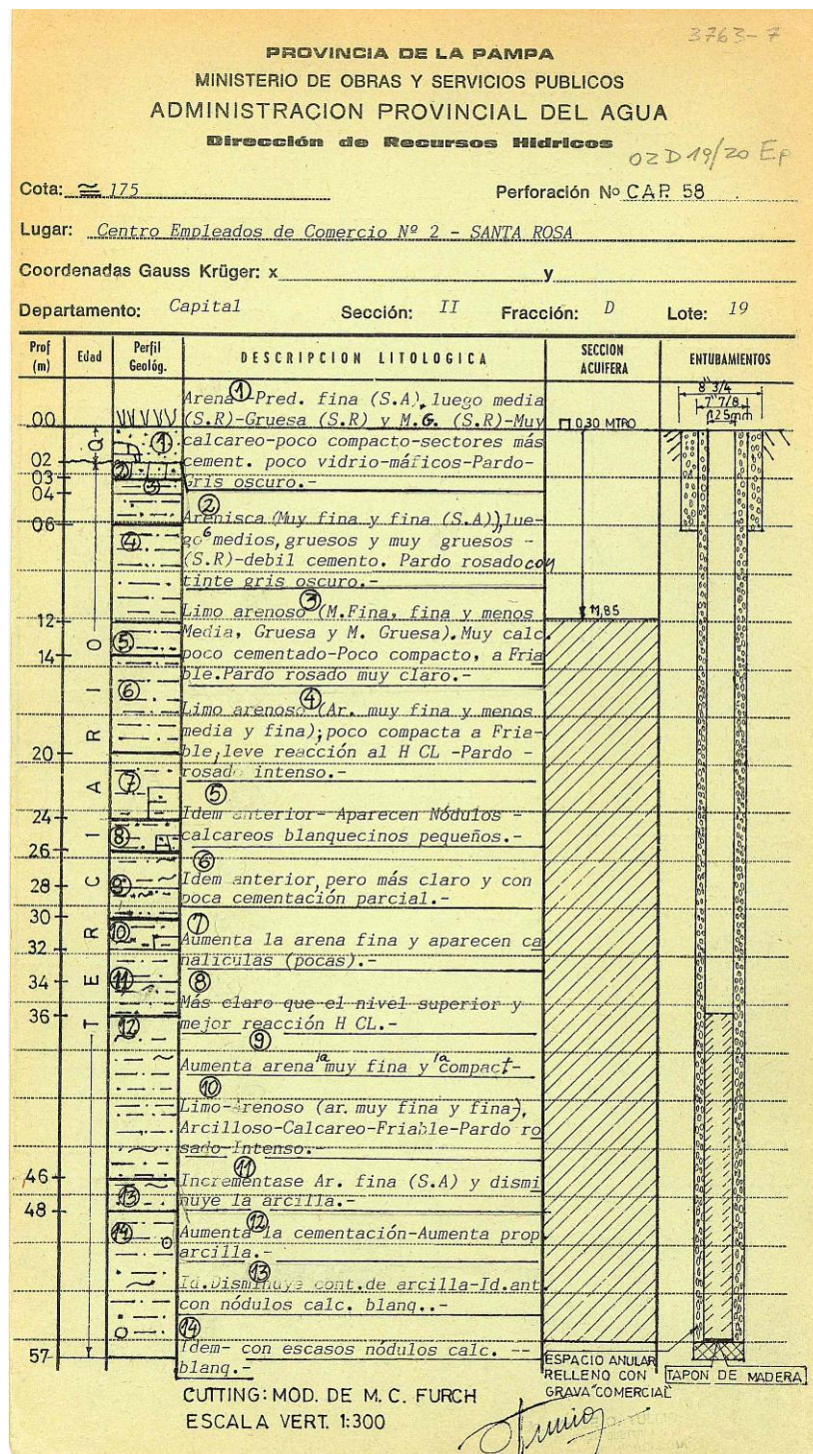 3763-7
PROVINCIA DE LA PAMPA
MINISTERIO DE OBRAS Y SERVICIOS PUBLICOS
ADMINISTRACION PROVINCIAL DEL AGUA
Dirección de Recursos Hídricos
02D19/20 Ep
Cota: ≅ 175 Perforación Nº CAP. 58
Lugar: Centro Empleados de Comercio Nº 2 - SANTA ROSA
Coordenadas Gauss Krüger: x y
Departamento: Capital Sección: II Fracción: D Lote: 19
Prof (m) Edad Perfil Geológ. DESCRIPCION LITOLOGICA SECCION ACUIFERA ENTUBAMIENTOS
8" 3/4
7" 7/8
125mm
0,30 MTRO
11,85
00
02
03
04
06
12
14
20
24
26
28
30
32
34
36
46
48
57
Q
TERCIARIO
1
2
3
4
5
6
7
8
9
10
11
12
13
14
1
Arena-Pred. fina (S.A), luego media
(S.R)-Gruesa (S.R) y M.G. (S.R)-Muy
calcareo-poco compacto-sectores más
cement. poco vidrio-máficos-Pardo-
gris oscuro.-
2
Arenisca (Muy fina y fina (S.A)), lue-
go medios, gruesos y muy gruesos -
(S.R)-debil cemento. Pardo rosado con
tinte gris oscuro.-
3
Limo arenoso (M.Fina, fina y menos
Media, Gruesa y M. Gruesa). Muy calc.
poco cementado-Poco compacto, a Fria
ble.Pardo rosado muy claro.-
4
Limo arenoso (Ar. muy fina y menos
media y fina); poco compacta a Fria-
ble, leve reacción al H CL -Pardo -
rosado intenso.-
5
Idem anterior- Aparecen Nódulos -
calcareos blanquecinos pequeños.-
6
Idem anterior, pero más claro y con
poca cementación parcial.-
7
Aumenta la arena fina y aparecen ca
nalículas (pocas).-
8
Más claro que el nivel superior y
mejor reacción H CL.-
9
Aumenta arena la muy fina y la compact-
10
Limo-Arenoso (ar. muy fina y fina),
Arcilloso-Calcareo-Friable-Pardo ro
sado-Intenso.-
11
Incrementase Ar. fina (S.A) y dismi
nuye la arcilla.-
12
Aumenta la cementación-Aumenta prop
arcilla.-
13
Id.Disminuye cont.de arcilla-Id.ant
con nódulos calc. blanq..-
14
Idem- con escasos nódulos calc. --
blanq.-
ESPACIO ANULAR
RELLENO CON
GRAVA"COMERCIAL
TAPON DE MADERA
CUTTING: MOD. DE M. C. FURCH
ESCALA VERT. 1:300